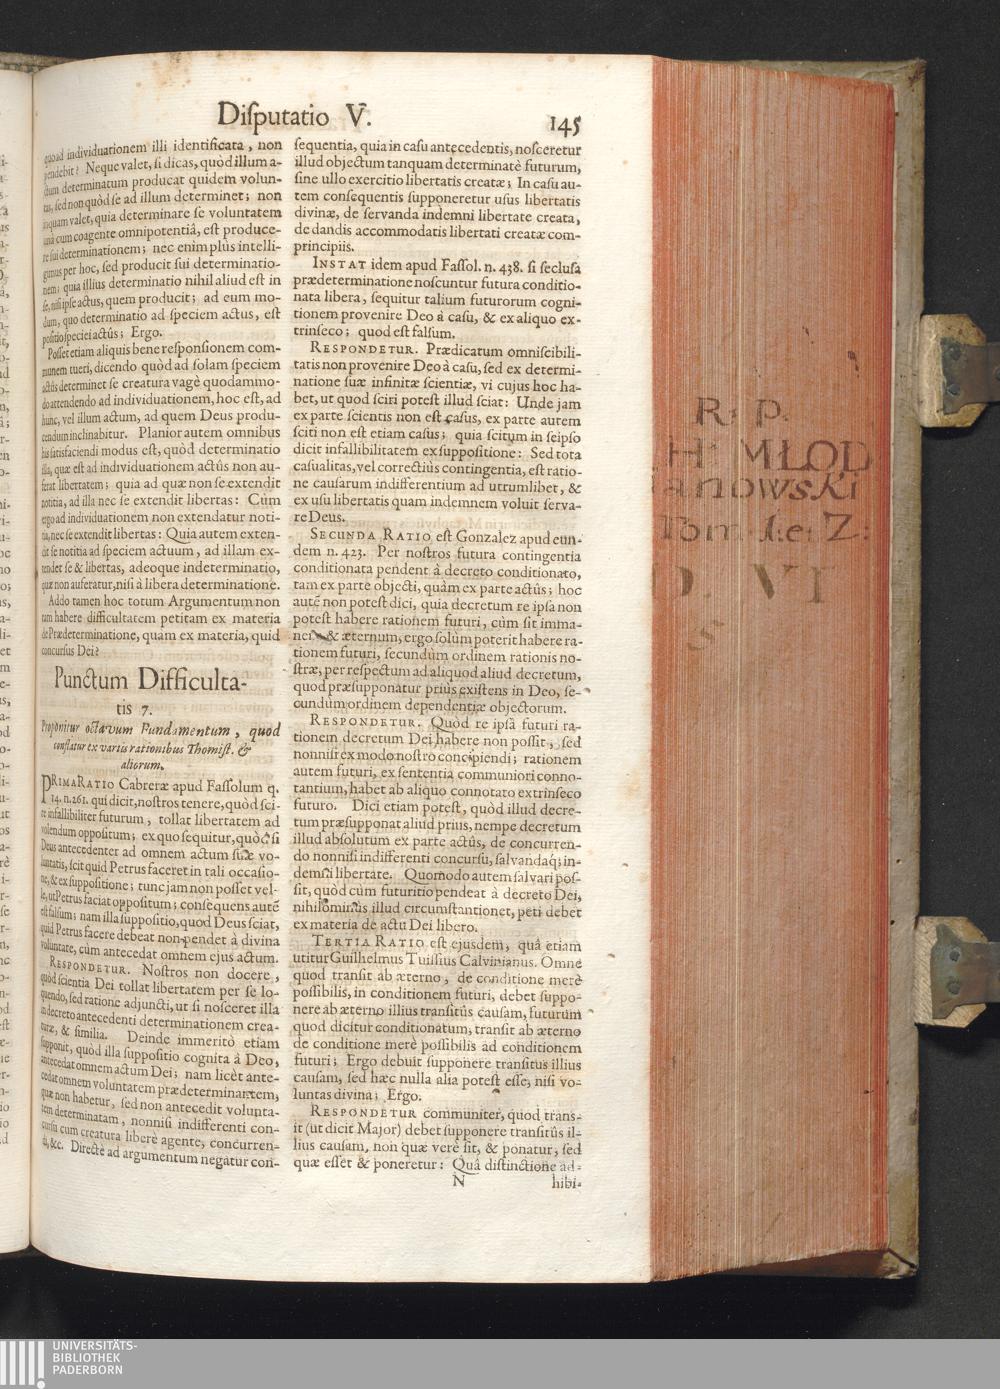 Disputatio V.
145
quoad individuationem illi identificata, non
pendebit? Neque valet, si dicas, quòd illum a-
ctum determinatum producat quidem volun-
tas, sed non quòd se ad illum determinet; non
inquam valet, quia determinare se voluntatem
unà cum coagente omnipotentiâ, est produce-
re sui determinationem; nec enim plùs intelli-
gimus per hoc, sed producit sui determinatio-
nem; quia illius determinatio nihil aliud est in
se, nisi ipse actus, quem producit; ad eum mo-
dum, quo determinatio ad speciem actus, est
positio speciei actûs; Ergo.
Posset etiam aliquis bene responsionem com-
munem tueri, dicendo quòd ad solam speciem
actûs determinet se creatura vagè quodammo-
do attendendo ad individuationem, hoc est, ad
hunc, vel illum actum, ad quem Deus produ-
cendum inclinabitur. Planior autem omnibus
his satisfaciendi modus est, quòd determinatio
illa, quæ est ad individuationem actûs non au-
ferat libertatem; quia ad quæ non se extendit
notitia, ad illa nec se extendit libertas: Cùm
ergo ad individuationem non extendatur noti-
tia, nec se extendit libertas: Quia autem exten-
dit se notitia ad speciem actuum, ad illam ex-
tendet se & libertas, adeoque indeterminatio,
quæ non auferatur, nisi à libera determinatione.
Addo tamen hoc totum Argumentum non
tam habere difficultatem petitam ex materia
de Prædeterminatione, quam ex materia, quid
concursus Dei?
Punctum Difficulta-
tis 7.
Proponitur octavum Fundamentum, quod
conflatur ex variis rationibus Thomist. &
aliorum.
PRIMA RATIO Cabreræ apud Fassolum q.
14. n. 261. qui dicit, nostros tenere, quòd sci-
re infallibiliter futurum, tollat libertatem ad
volendum oppositum; ex quo sequitur, quòd si
Deus antecedenter ad omnem actum suæ vo-
luntatis, scit quid Petrus faceret in tali occasio-
ne, & ex suppositione; tunc jam non posset vel-
le, ut Petrus faciat oppositum; consequens autē
est falsum; nam illa suppositio, quod Deus sciat,
quid Petrus facere debeat non pendet à divina
voluntate, cùm antecedat omnem ejus actum.
RESPONDETUR. Nostros non docere,
quòd scientia Dei tollat libertatem per se lo-
quendo, sed ratione adjuncti, ut si nosceret illa
in decreto antecedenti determinationem crea-
turæ, & similia. Deinde immeritò etiam
supponit, quòd illa suppositio cognita à Deo,
antecedat omnem actum Dei; nam licèt ante-
cedat omnem voluntatem prædeterminantem,
quæ non habetur, sed non antecedit volunta-
tem determinatam, nonnisi indifferenti con-
cursu cum creatura liberè agente, concurren-
di, &c. Directè ad argumentum negatur con-
sequentia, quia in casu antecedentis, nosceretur
illud objectum tanquam determinatè futurum,
sine ullo exercitio libertatis creatæ; In casu au-
tem consequentis supponeretur usus libertatis
divinæ, de servanda indemni libertate creata,
de dandis accommodatis libertati creatæ com-
principiis.
INSTAT idem apud Fassol. n. 438. si seclusa
prædeterminatione noscuntur futura conditio-
nata libera, sequitur talium futurorum cogni-
tionem provenire Deo à casu, & ex aliquo ex-
trinseco; quod est falsum.
RESPONDETUR. Prædicatum omniscibili-
tatis non provenire Deo à casu, sed ex determi-
natione suæ infinitæ scientiæ, vi cujus hoc ha-
bet, ut quod sciri potest illud sciat: Unde jam
ex parte scientis non est casus, ex parte autem
sciti non est etiam casus; quia scitum in seipso
dicit infallibilitatem ex suppositione: Sed tota
casualitas, vel correctiùs contingentia, est ratio-
ne causarum indifferentium ad utrumlibet, &
ex usu libertatis quam indemnem voluit serva-
re Deus.
SECUNDA RATIO est Gonzalez apud eun-
dem n. 423. Per nostros futura contingentia
conditionata pendent à decreto conditionato,
tam ex parte objecti, quàm ex parte actûs; hoc
autē non potest dici, quia decretum re ipsa non
potest habere rationem futuri, cùm sit imma-
nens & æternum, ergo solùm poterit habere ra-
tionem futuri, secundùm ordinem rationis no-
stræ, per respectum ad aliquod aliud decretum,
quod præsupponatur priùs existens in Deo, se-
cundùm ordinem dependentiæ objectorum.
RESPONDETUR. Quòd re ipsâ futuri ra-
tionem decretum Dei habere non possit, sed
nonnisi ex modo nostro concipiendi; rationem
autem futuri, ex sententia communiori conno-
tantium, habet ab aliquo connotato extrinseco
futuro. Dici etiam potest, quòd illud decre-
tum præsupponat aliud prius, nempe decretum
illud absolutum ex parte actûs, de concurren-
do nonnisi indifferenti concursu, salvandaq; in-
demni libertate. Quomodo autem salvari pos-
sit, quòd cùm futuritio pendeat à decreto Dei,
nihilominùs illud circumstantionet, peti debet
ex materia de actu Dei libero.
TERTIA RATIO est ejusdem, quâ etiam
utitur Guilhelmus Tuissius Calvinianus. Omne
quod transit ab æterno, de conditione merè
possibilis, in conditionem futuri, debet suppo-
nere ab æterno illius transitûs causam, futurum
quod dicitur conditionatum, transit ab æterno
de conditione merè possibilis ad conditionem
futuri; Ergo debuit supponere transitus illius
causam, sed hæc nulla alia potest esse, nisi vo-
luntas divina; Ergo.
RESPONDETUR communiter, quod trans-
it (ut dicit Major) debet supponere transitûs il-
lius causam, non quæ verè sit, & ponatur, sed
quæ esset & poneretur: Quâ distinctione ad-
N hibi-
R: P.
H MŁOD
ianowski
Tom: I: et Z:
D VI
S
UNIVERSITÄTS-
BIBLIOTHEK
PADERBORN